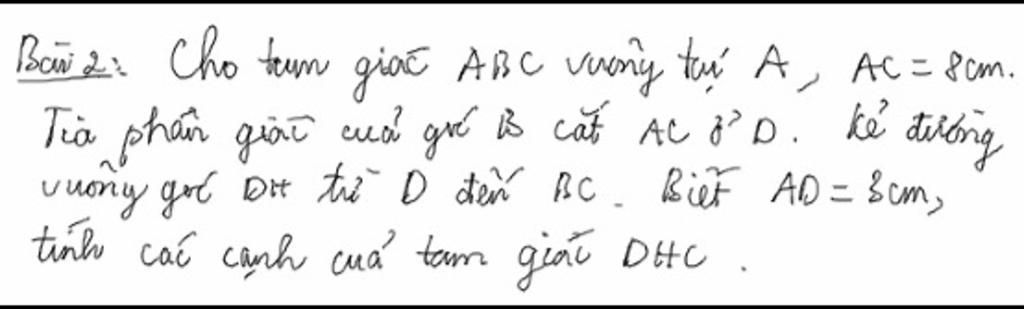 Bài 2: Cho tam giác ABC vuông tại A, AC = 8cm.
Tia phân giác của góc B cắt AC ở D. Kẻ đường
vuông góc DH từ D đến BC. Biết AD = 3cm,
tính các cạnh của tam giác DHC.